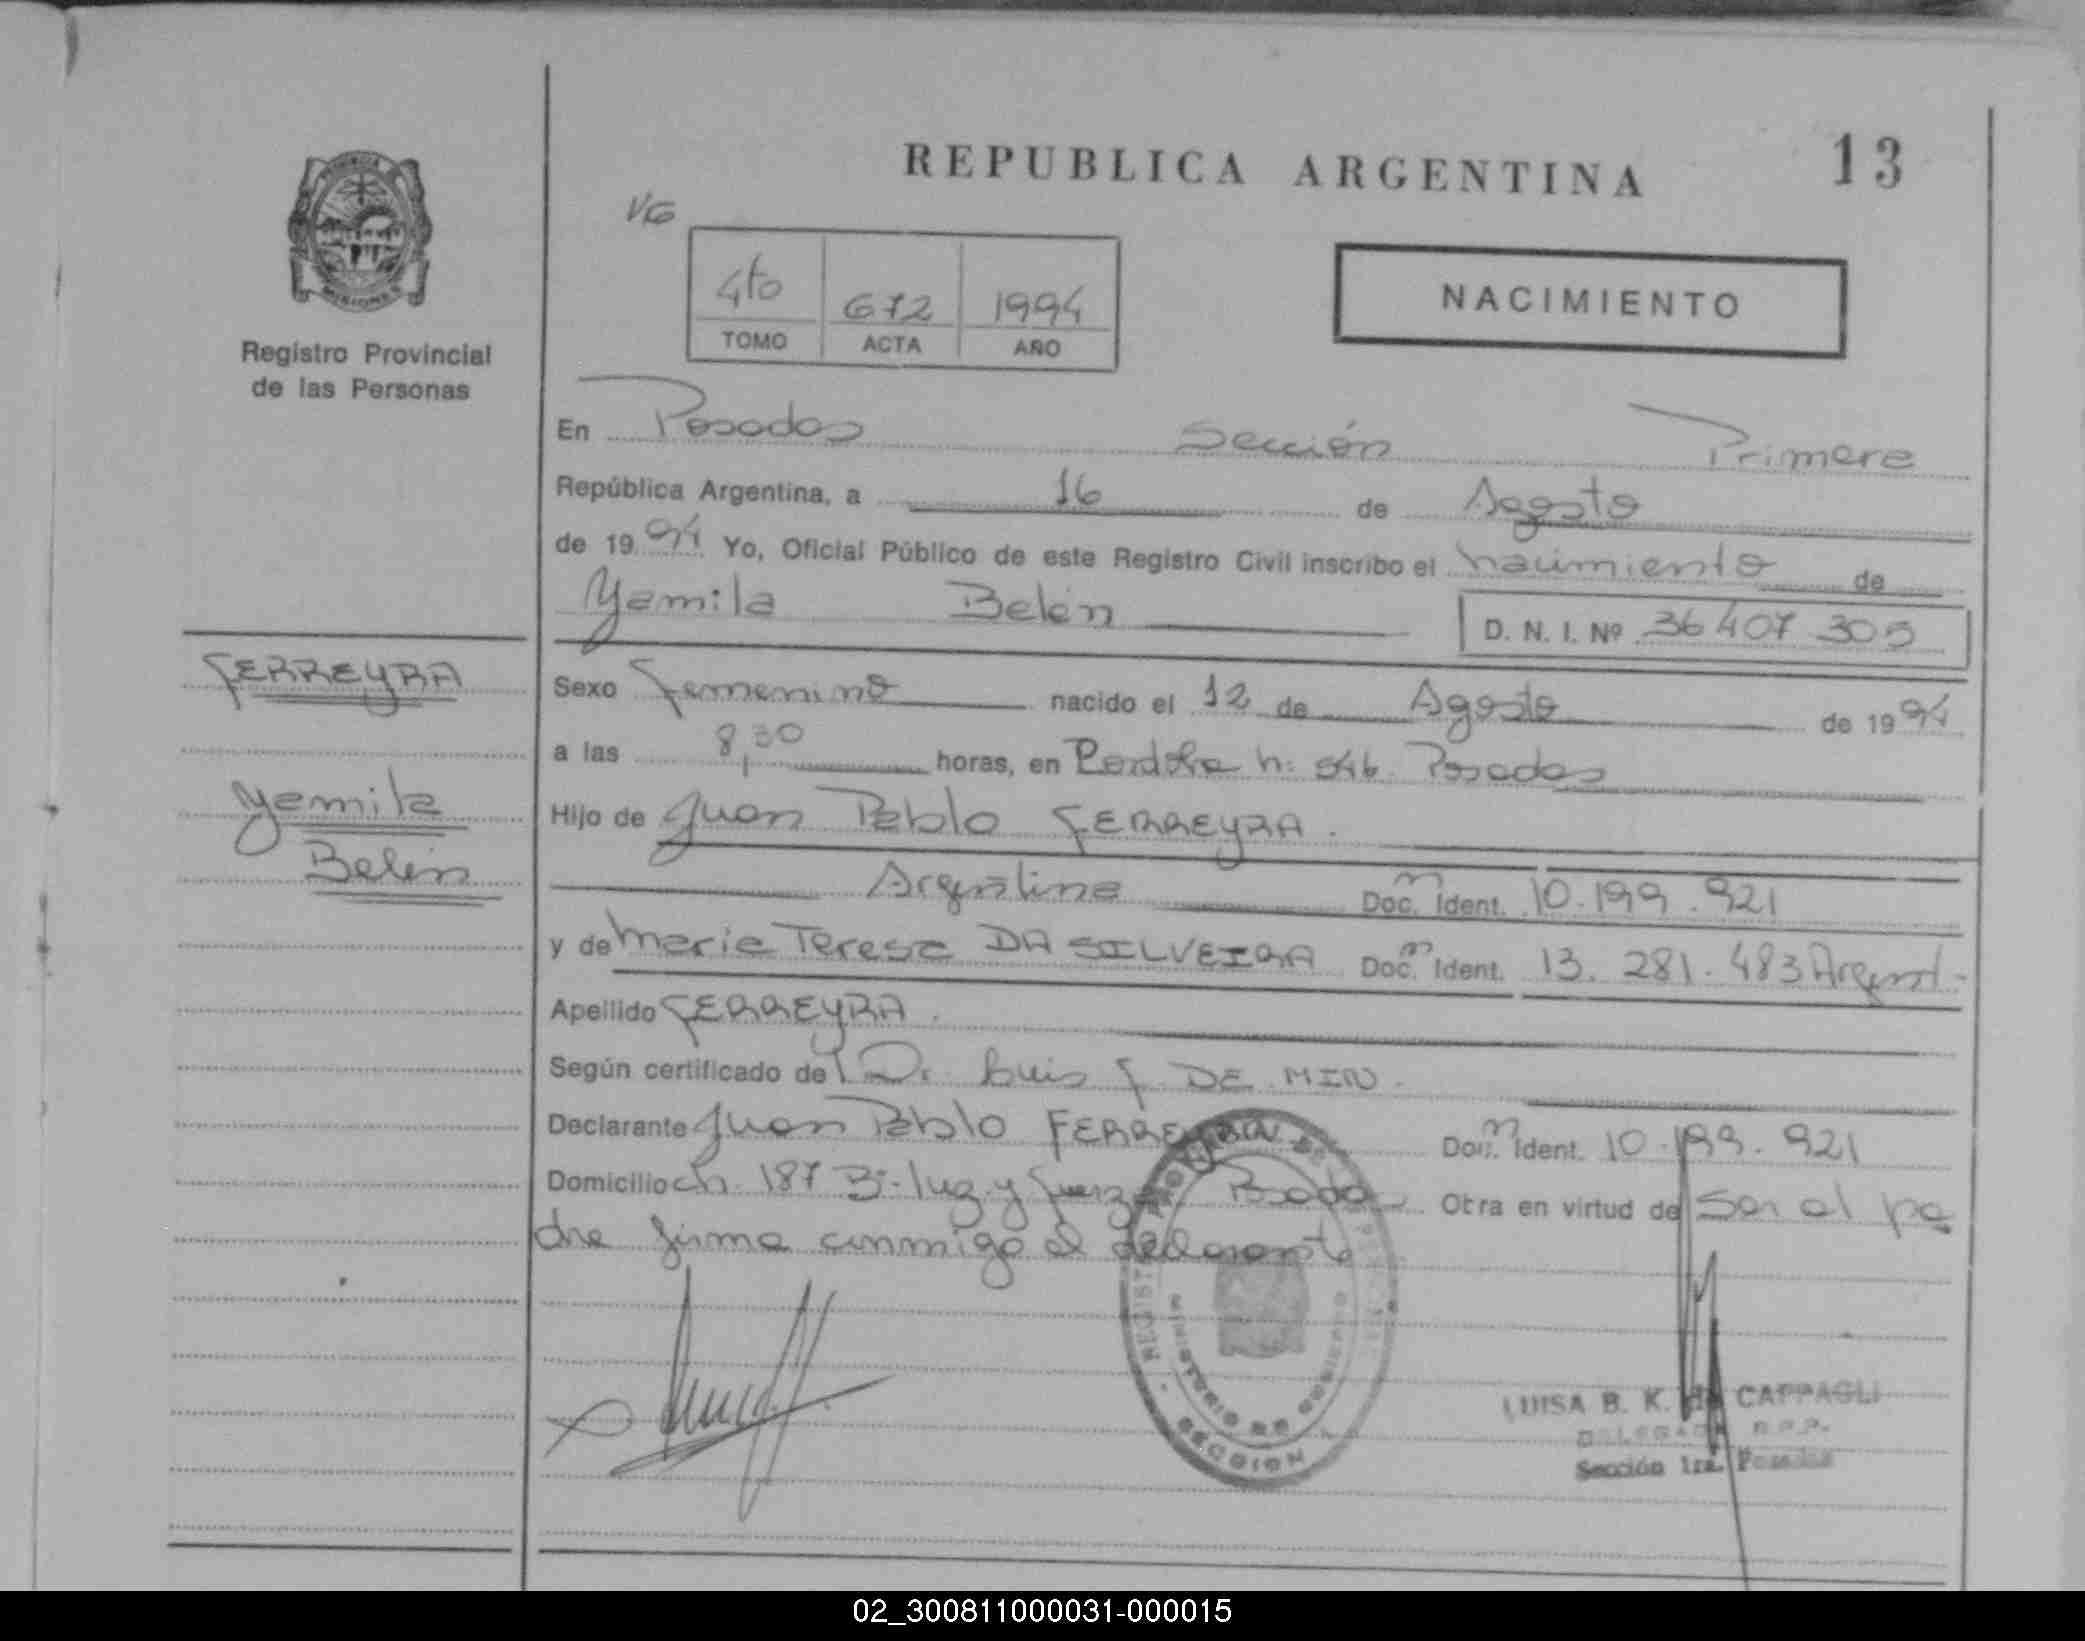 REPUBLICA ARGENTINA
13
VG
4to 672 1994
TOMO ACTA AÑO
NACIMIENTO
MISIONES
Registro Provincial
de las Personas
En Posadas Sección Primera
República Argentina, a 16 de Agosto
de 1994 Yo, Oficial Público de este Registro Civil inscribo el nacimiento de
Yamila Belén D. N. I. Nº 36 407 305
FERREYRA
Yamila
Belén
Sexo femenino nacido el 12 de Agosto de 1994
a las 8,30 horas, en n: 546 Posadas
Hijo de Juan Pablo FERREYRA.
Argentina Doc. Ident. 10.199.921
y de Maria Teresa DA SILVEIRA Doc. Ident. 13.281.483 Argent.
Apellido FERREYRA.
Según certificado del Dr Luis F. DE MIN.
Declarante Juan Pablo FERREYRA Doc. Ident. 10.199.921
Domicilio ch. 187 Bº luz y fuerza Posadas Otra en virtud de Ser el pa
dre firma conmigo el declarante
MINISTERIO DE GOBIERNO
SECCION 1
LUISA B. K. de CAPPAGLI
DELEGADA R.P.P.
Sección 1ra. Posadas
02_300811000031-000015